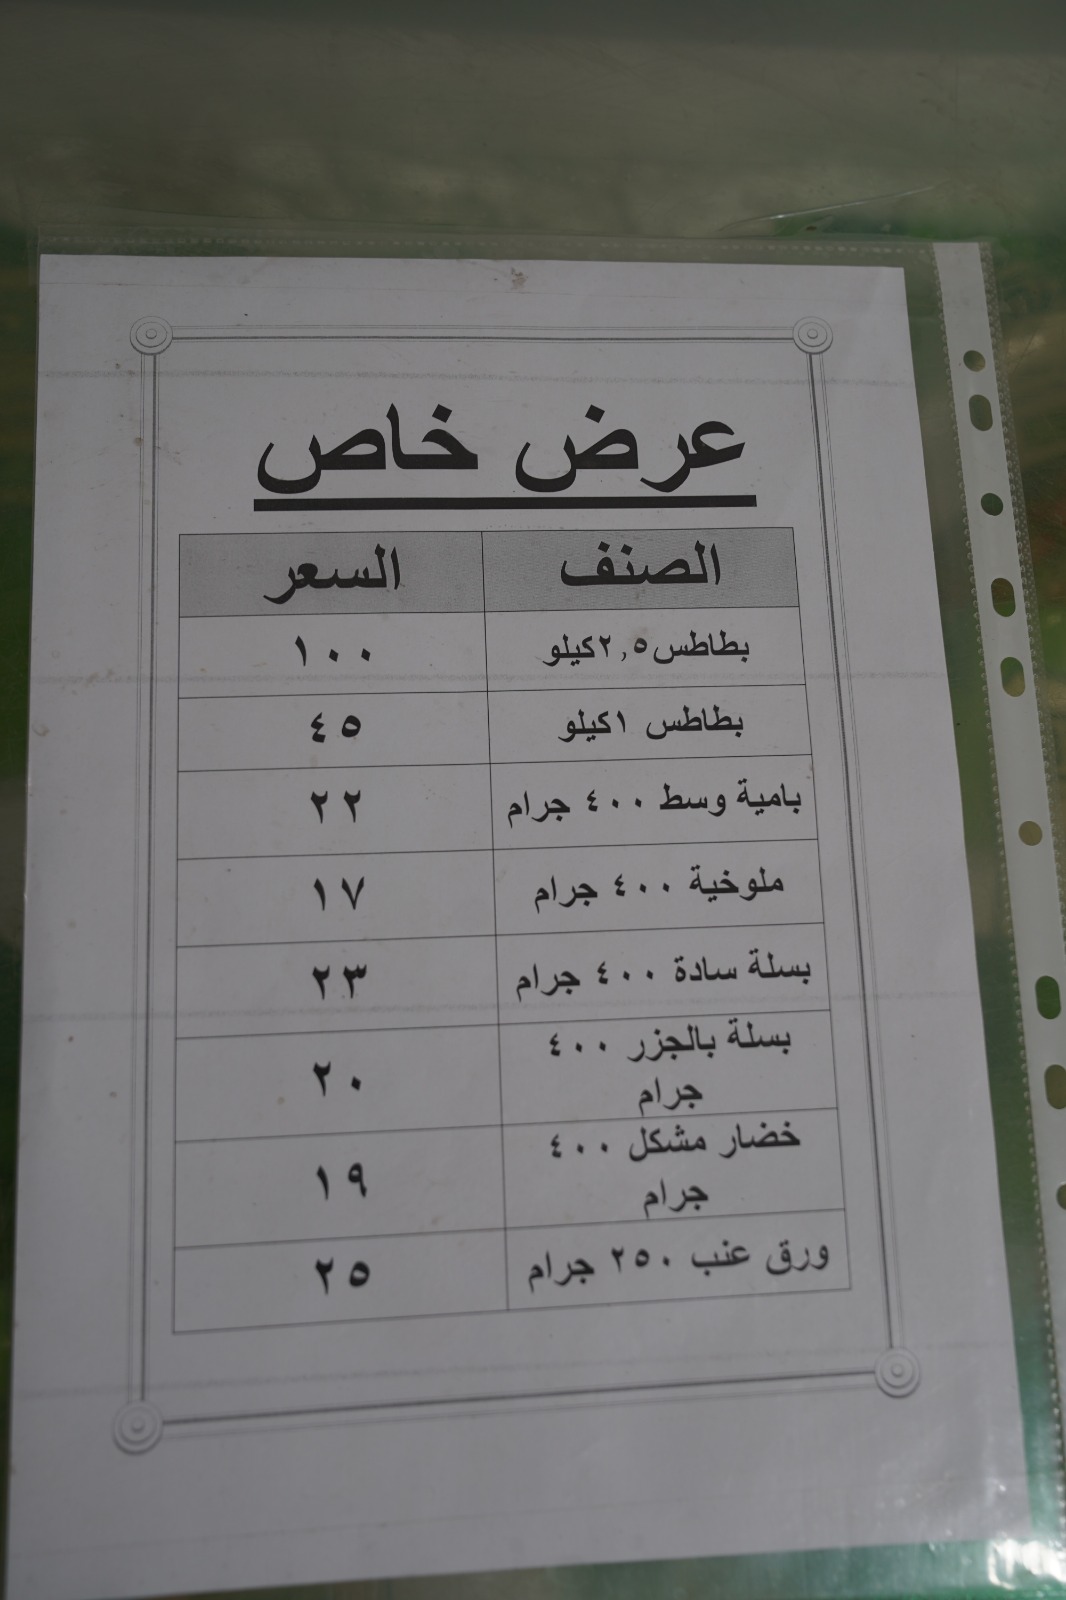 عرض خاص
الصنف السعر
بطاطس٢,٥كيلو ١٠٠
بطاطس ١كيلو ٤٥
بامية وسط ٤٠٠ جرام ٢٢
ملوخية ٤٠٠ جرام ١٧
بسلة سادة ٤٠٠ جرام ٢٣
بسلة بالجزر ٤٠٠
جرام ٢٠
خضار مشكل ٤٠٠
جرام ١٩
ورق عنب ٢٥٠ جرام ٢٥